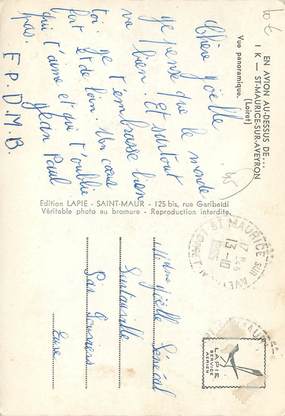 10 €
EN AVION AU-DESSUS DE...
1 K — ST-MAURICE-SUR-AVEYRON
(Loiret)
Vue panoramique.
Chère Joëlle
Je pense que le monde
va bien. Et surtout
toi. Je t'embrasse bien
fort et de loin. Un cœur
qui t'aime et qui t'oublie
pas. Jean Paul
E.P.D.M.B.
Edition LAPIE - SAINT-MAUR - 125 bis, rue Garibaldi
Véritable photo au bromure - Reproduction interdite.
ST MAURICE SUR AVEYRON
13-10
Joëlle Sénécal
Par
Eure
LAPIE
SERVICE
AÉRIEN